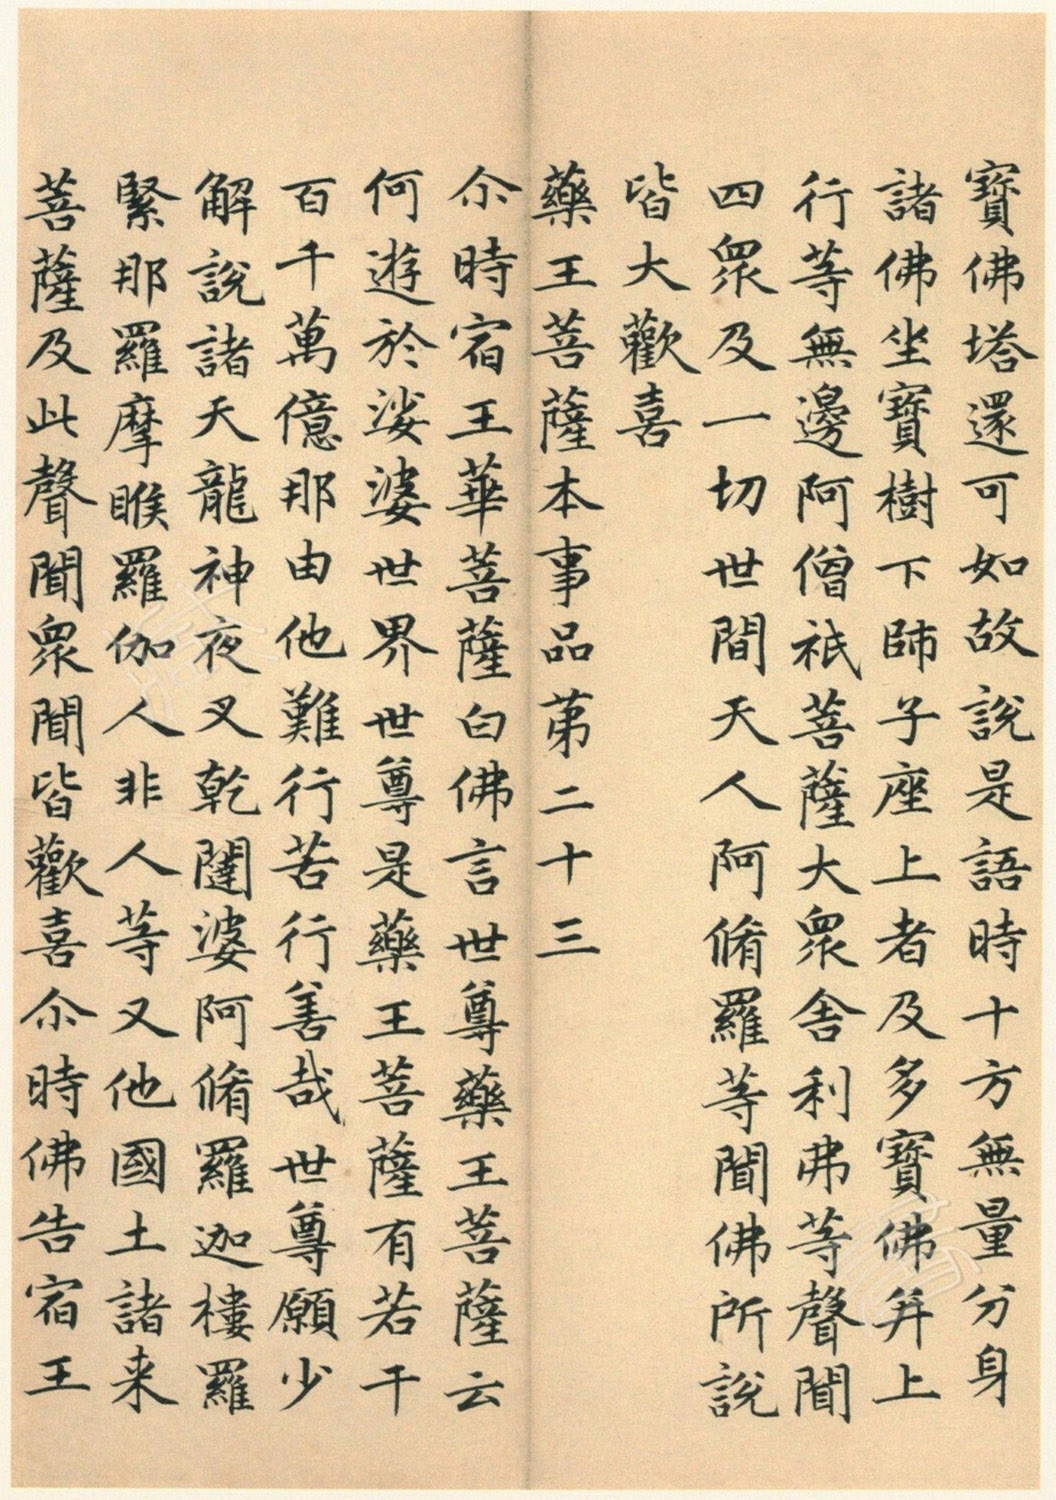 寶佛塔還可如故說是語時十方無量分身
諸佛坐寶樹下師子座上者及多寶佛并上
行等無邊阿僧祇菩薩大眾舍利弗等聲聞
四眾及一切世間天人阿脩羅等聞佛所說
皆大歡喜
藥王菩薩本事品第二十三
尒時宿王華菩薩白佛言世尊藥王菩薩云
何遊於娑婆世界世尊是藥王菩薩有若干
百千萬億那由他難行苦行善哉世尊願少
解說諸天龍神夜叉乾闥婆阿脩羅迦樓羅
緊那羅摩睺羅伽人非人等又他國土諸来
菩薩及此聲聞眾聞皆歡喜尒時佛告宿王